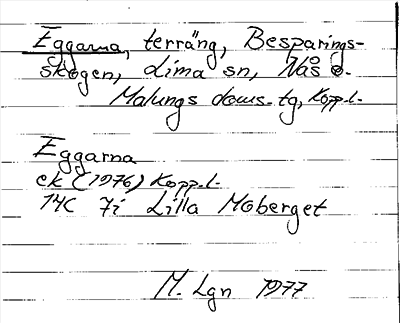 Eggarna, terräng, Besparings-
skogen, Lima sn, Nås o.
Malungs doms. tg, Kopp. l.
Eggarna
ek (1976) Kopp. l.
14C 7i Lilla Moberget
M. Lgn 1977